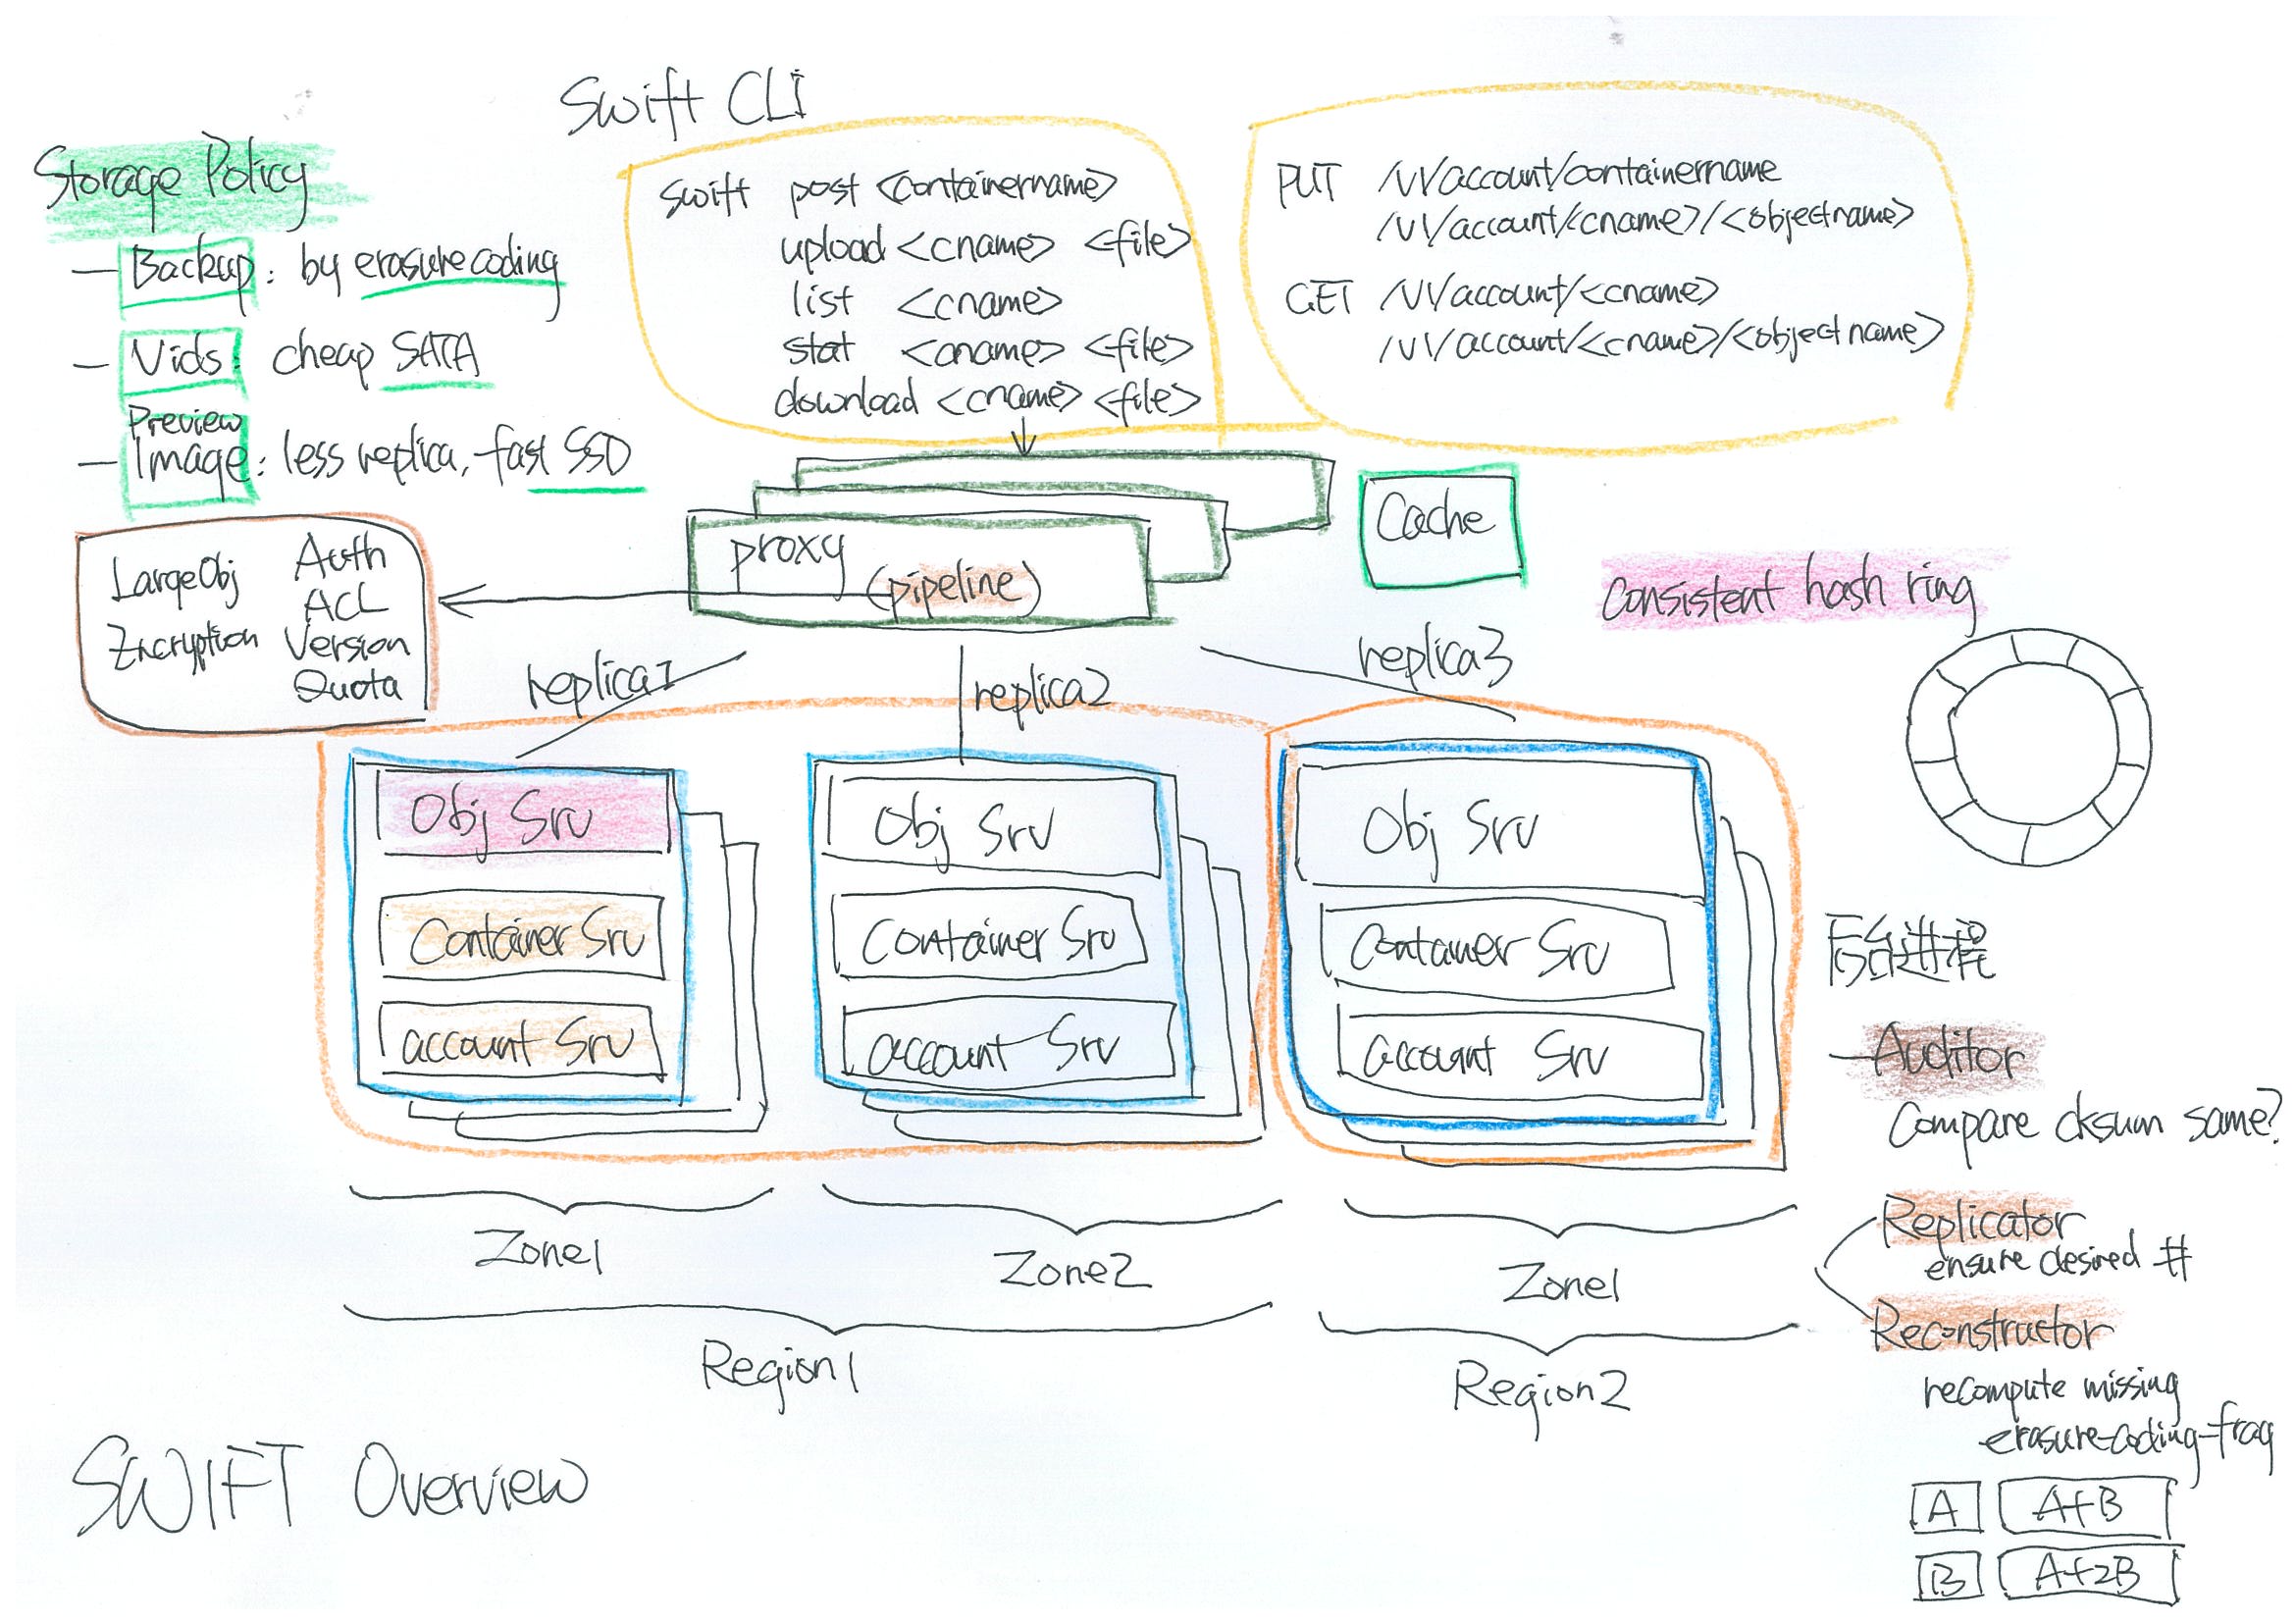 Swift CLI
Storage Policy
— Backup: by erasurecoding
— Vids: cheap SATA
— Preview
Image: less replica, fast SSD
swift post <containername>
upload <cname> <file>
list <cname>
stat <cname> <file>
download <cname> <file>
PUT /v1/account/containername
/v1/account/<cname>/<objectname>
GET /v1/account/<cname>
/v1/account/<cname>/<objectname>
proxy
(pipeline)
Cache
LargeObj Auth
ACL
Encryption Version
Quota
Consistent hash ring
replica1
replica2
replica3
Obj Srv
Container Srv
account Srv
Obj Srv
Container Srv
account Srv
Obj Srv
Container Srv
account Srv
Zone1
Zone2
Zone1
Region1
Region2
后台进程
— Auditor
Compare cksum same?
Replicator
ensure desired #
Reconstructor
recompute missing
erasure-coding-frag
A A+B
B A+2B
SWIFT Overview